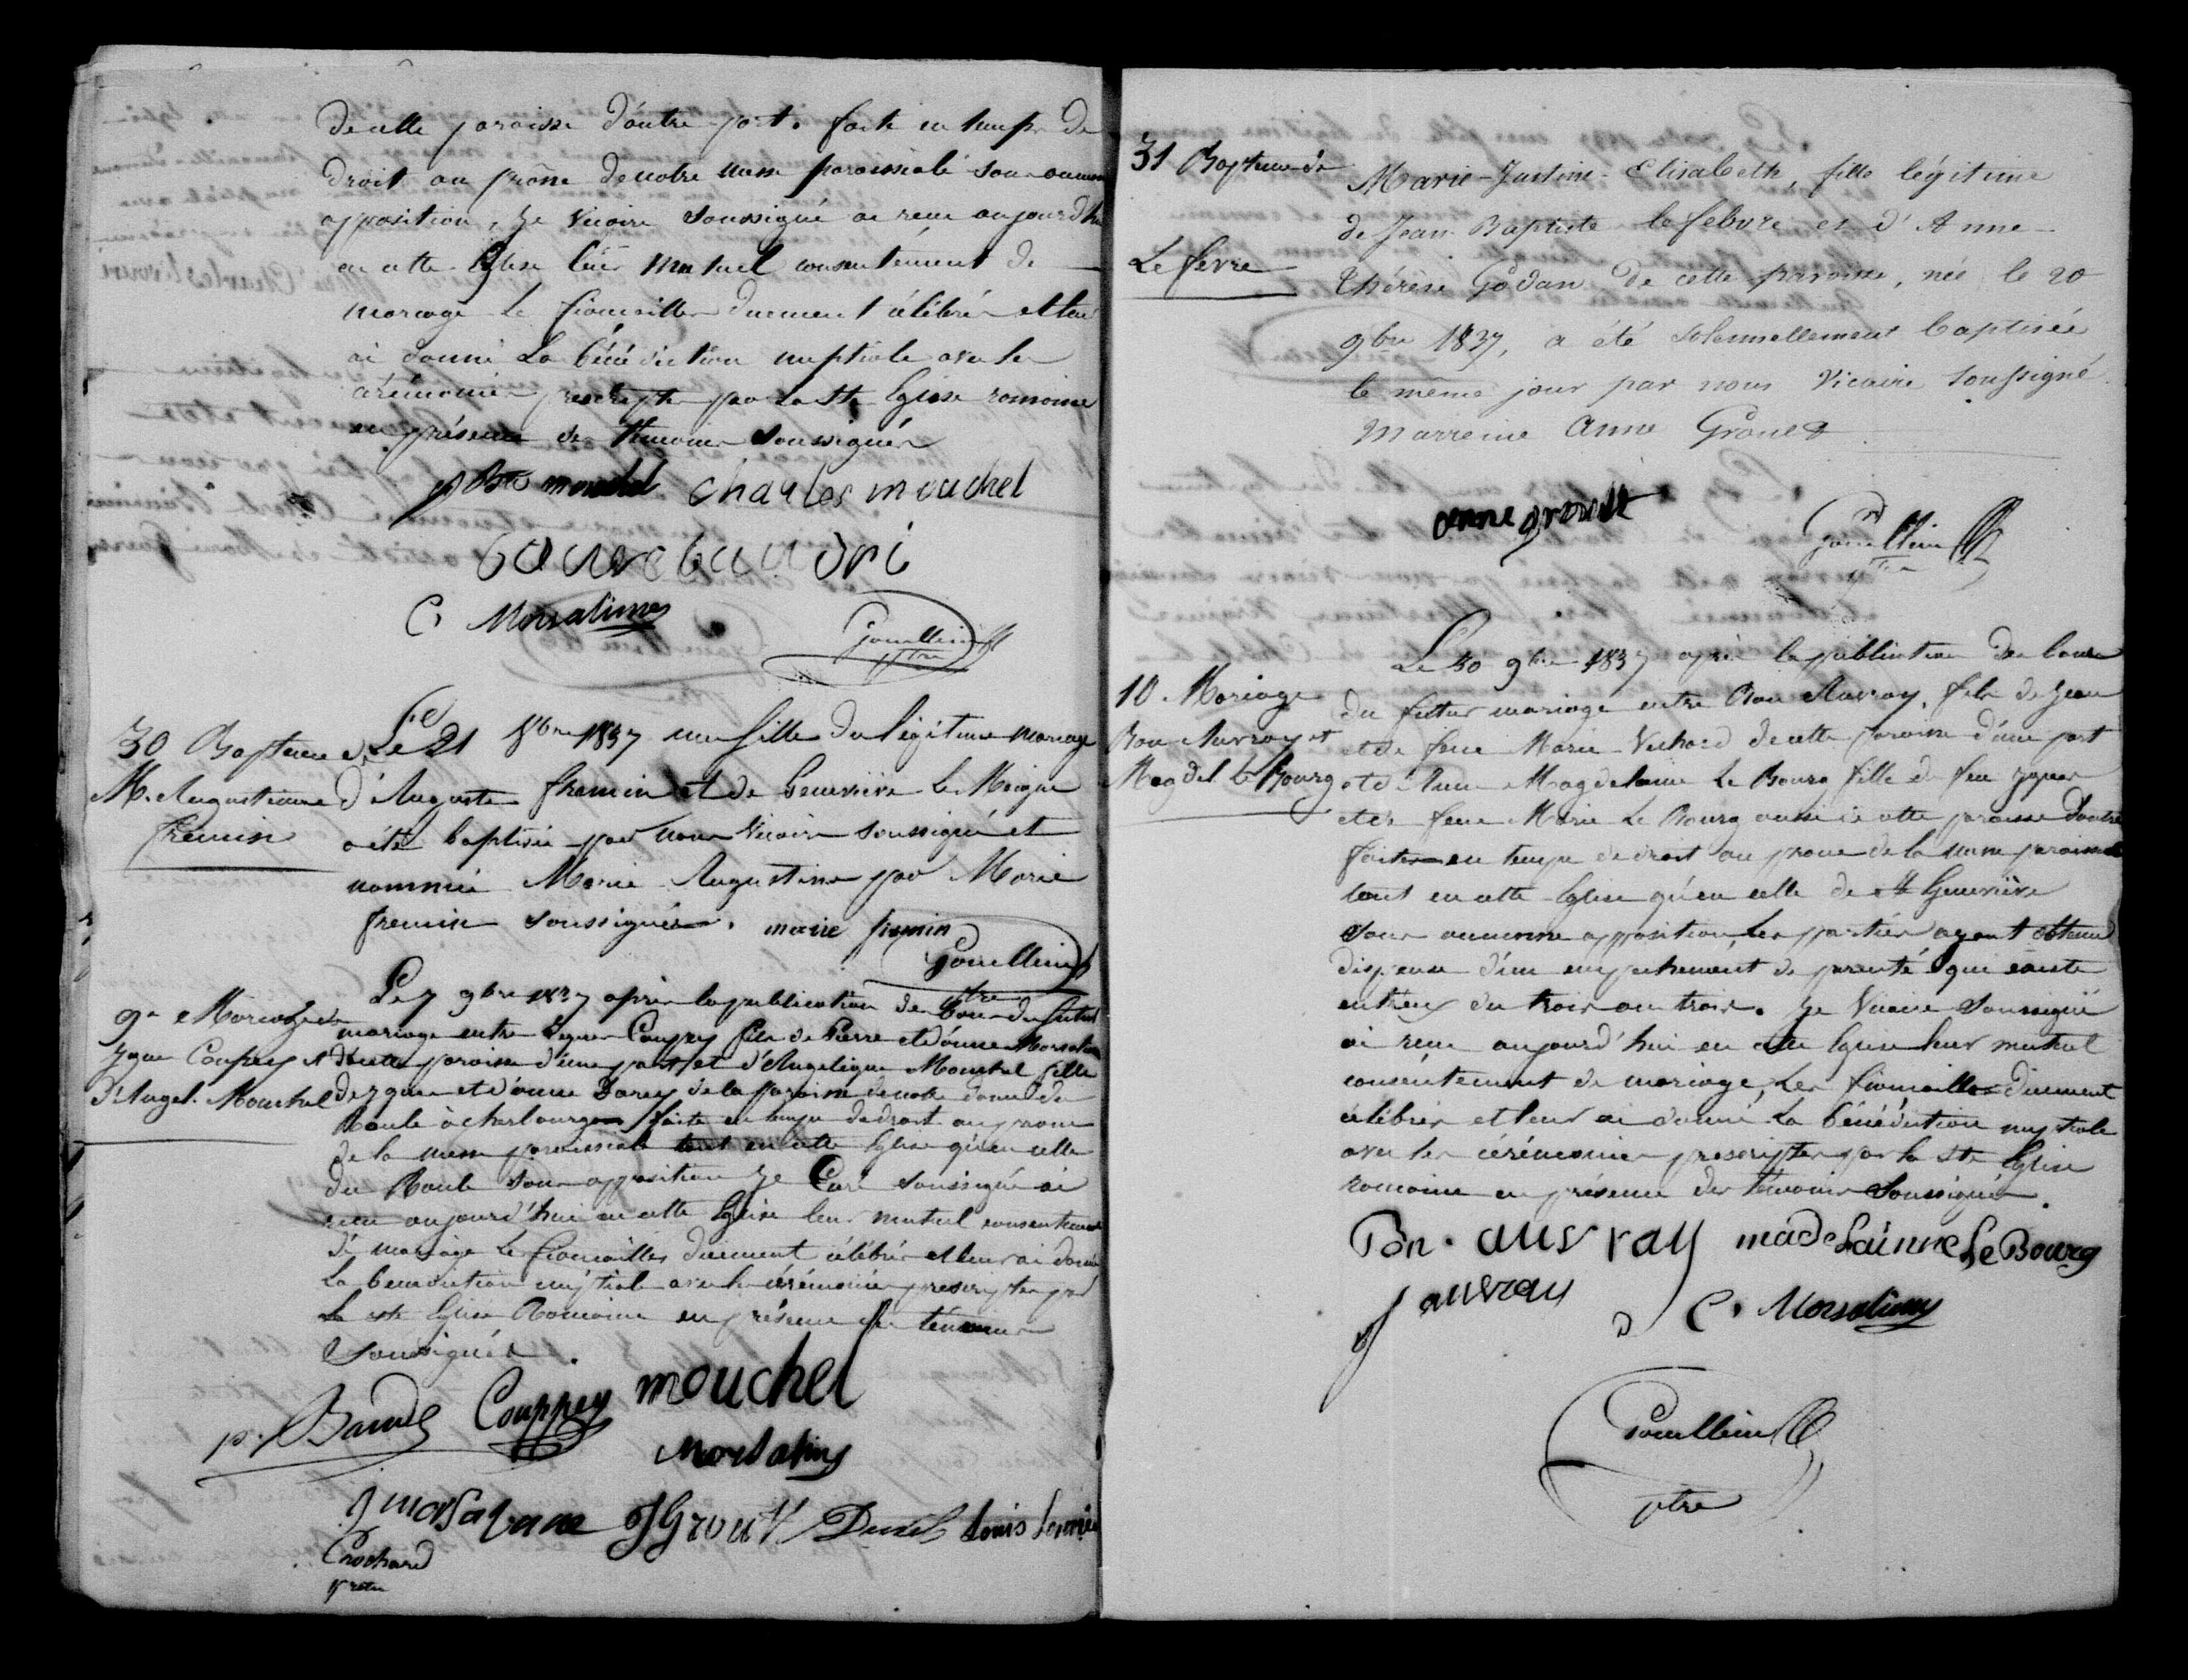 de cette paroisse d'autre part. faite en temps de
droit au prône de notre messe paroissiale sans aucune
opposition, Je Vicaire soussigné ai reçu aujourd'hui
en cette Eglise leur mutuel consentement de
mariage les fiançailles duement célébrées et leur
ai donné la bénédiction nuptiale avec les
cérémonies prescriptes par la Ste Eglise romaine
en présence des témoins soussignés
mouchel Charles mouchel
C. Morsalines
Gouellain
ptre
30 Bapteme de
M. Augustinne
fremin
Le 21 8bre 1837 une fille du légitime mariage
d'Auguste fremin et de Geneviève Le Moigne
a été baptisée par nous Vicaire soussigné et
nommée Marie Augustine par Marie
fremin soussignée. marie fremin
Gouellain
ptre
9e Mariage de
Jques Coupey et
d'Angel. Mouchel
Le 7 9bre 1837 après la publication de bans du futur
mariage entre Jques Coupey fils de Pierre et d'anne Morsalines
de cette paroisse d'une part et d'Angélique Mouchel fille
de Jques et d'anne de la paroisse de notre dame du
Roule à cherbourg faite en temps de droit au prone
de la messe paroissiale tant en cette Eglise qu'en celle
du Roule sans opposition Je Curé soussigné ai
reçu aujourd'hui en cette Eglise leur mutuel consentement
de mariage les fiançailles duement célébrées et leur ai donné
la bénédiction nuptiale avec les cérémonies prescriptes par
la ste Eglise Romaine en présence des témoins
soussignés.
Couppey mouchel
Morsalins
J Grout Louis
Crochard
ptre
31 Bapteme de
Le fevre
Marie-Justine-Elisabeth, fille légitime
de Jean-Baptiste lefebvre et d'Anne
thérèse Godan de cette paroisse, née le 20
9bre 1837, a été solennellement baptisée
le même jour par nous Vicaire soussigné.
Marreine Anne Grouet
anne grouet
Gouellain
ptre
10 Mariage
Bon Auvray et
Magdel. Le Bourg
Le 30 9bre 1837 après la publication de bans
du futur mariage entre Bon Auvray, fils de Jean
et de feue Marie Vechard de cette paroisse d'une part
et d'Anne Magdelaine Le Bourg fille de feu Jques
et de feue Marie Le Bourg aussi de cette paroisse d'autre
faites en temps de droit au prone de la messe paroissiale
tant en cette Eglise qu'en celle de Ste Geneviève
sans aucunne opposition, les parties ayant obtenu
dispense d'un empechement de parenté qui existe
entr'eux du trois au trois. Je Vicaire soussigné
ai reçu aujourd'hui en cette Eglise leur mutuel
consentement de mariage, les fiançailles duement
célébrées et leur ai donné la bénédiction nuptiale
avec les cérémonies prescriptes par la Ste Eglise
romaine en présence des témoins soussignés.
Bon. auvray madelainne Le Bourg
J auvray C. Morsalines
Gouellain
ptre